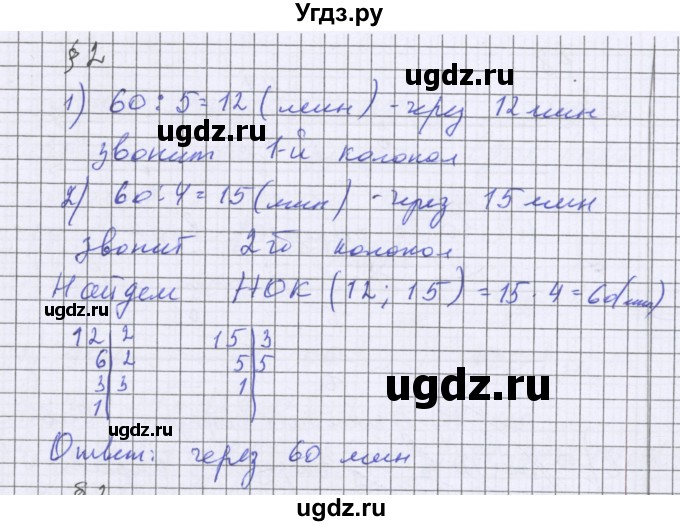 Угдз.ру
§ 2
1) 60 : 5 = 12 (мин) - через 12 мин
звонит 1-й колокол
2) 60 : 4 = 15 (мин) - через 15 мин
звонит 2-й колокол
Найдем НОК (12; 15) = 15 · 4 = 60 (мин)
12 | 2 15 | 3
6 | 2 5 | 5
3 | 3 1 |
1 |
Ответ: через 60 мин
ugdz.ru
ugdz.ru
ugdz.ru
ugdz.ru
ugdz.ru